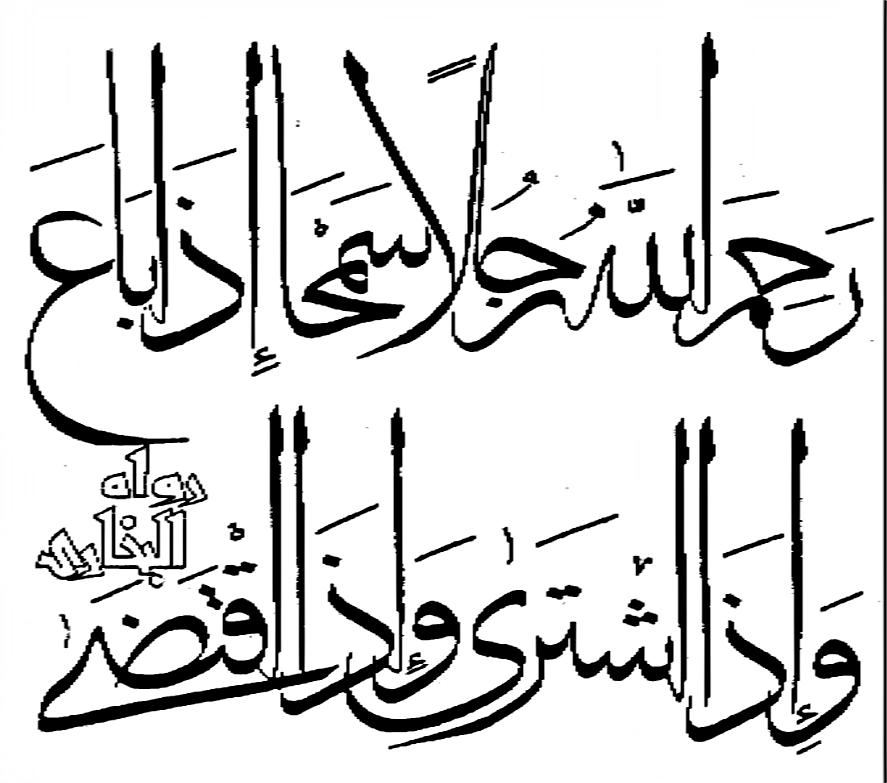 رَحِمَ اللَّهُ رَجُلًا سَمْحًا إِذَا بَاعَ
وَإِذَا اشْتَرَى وَإِذَا اقْتَضَى
رواه
البخاري